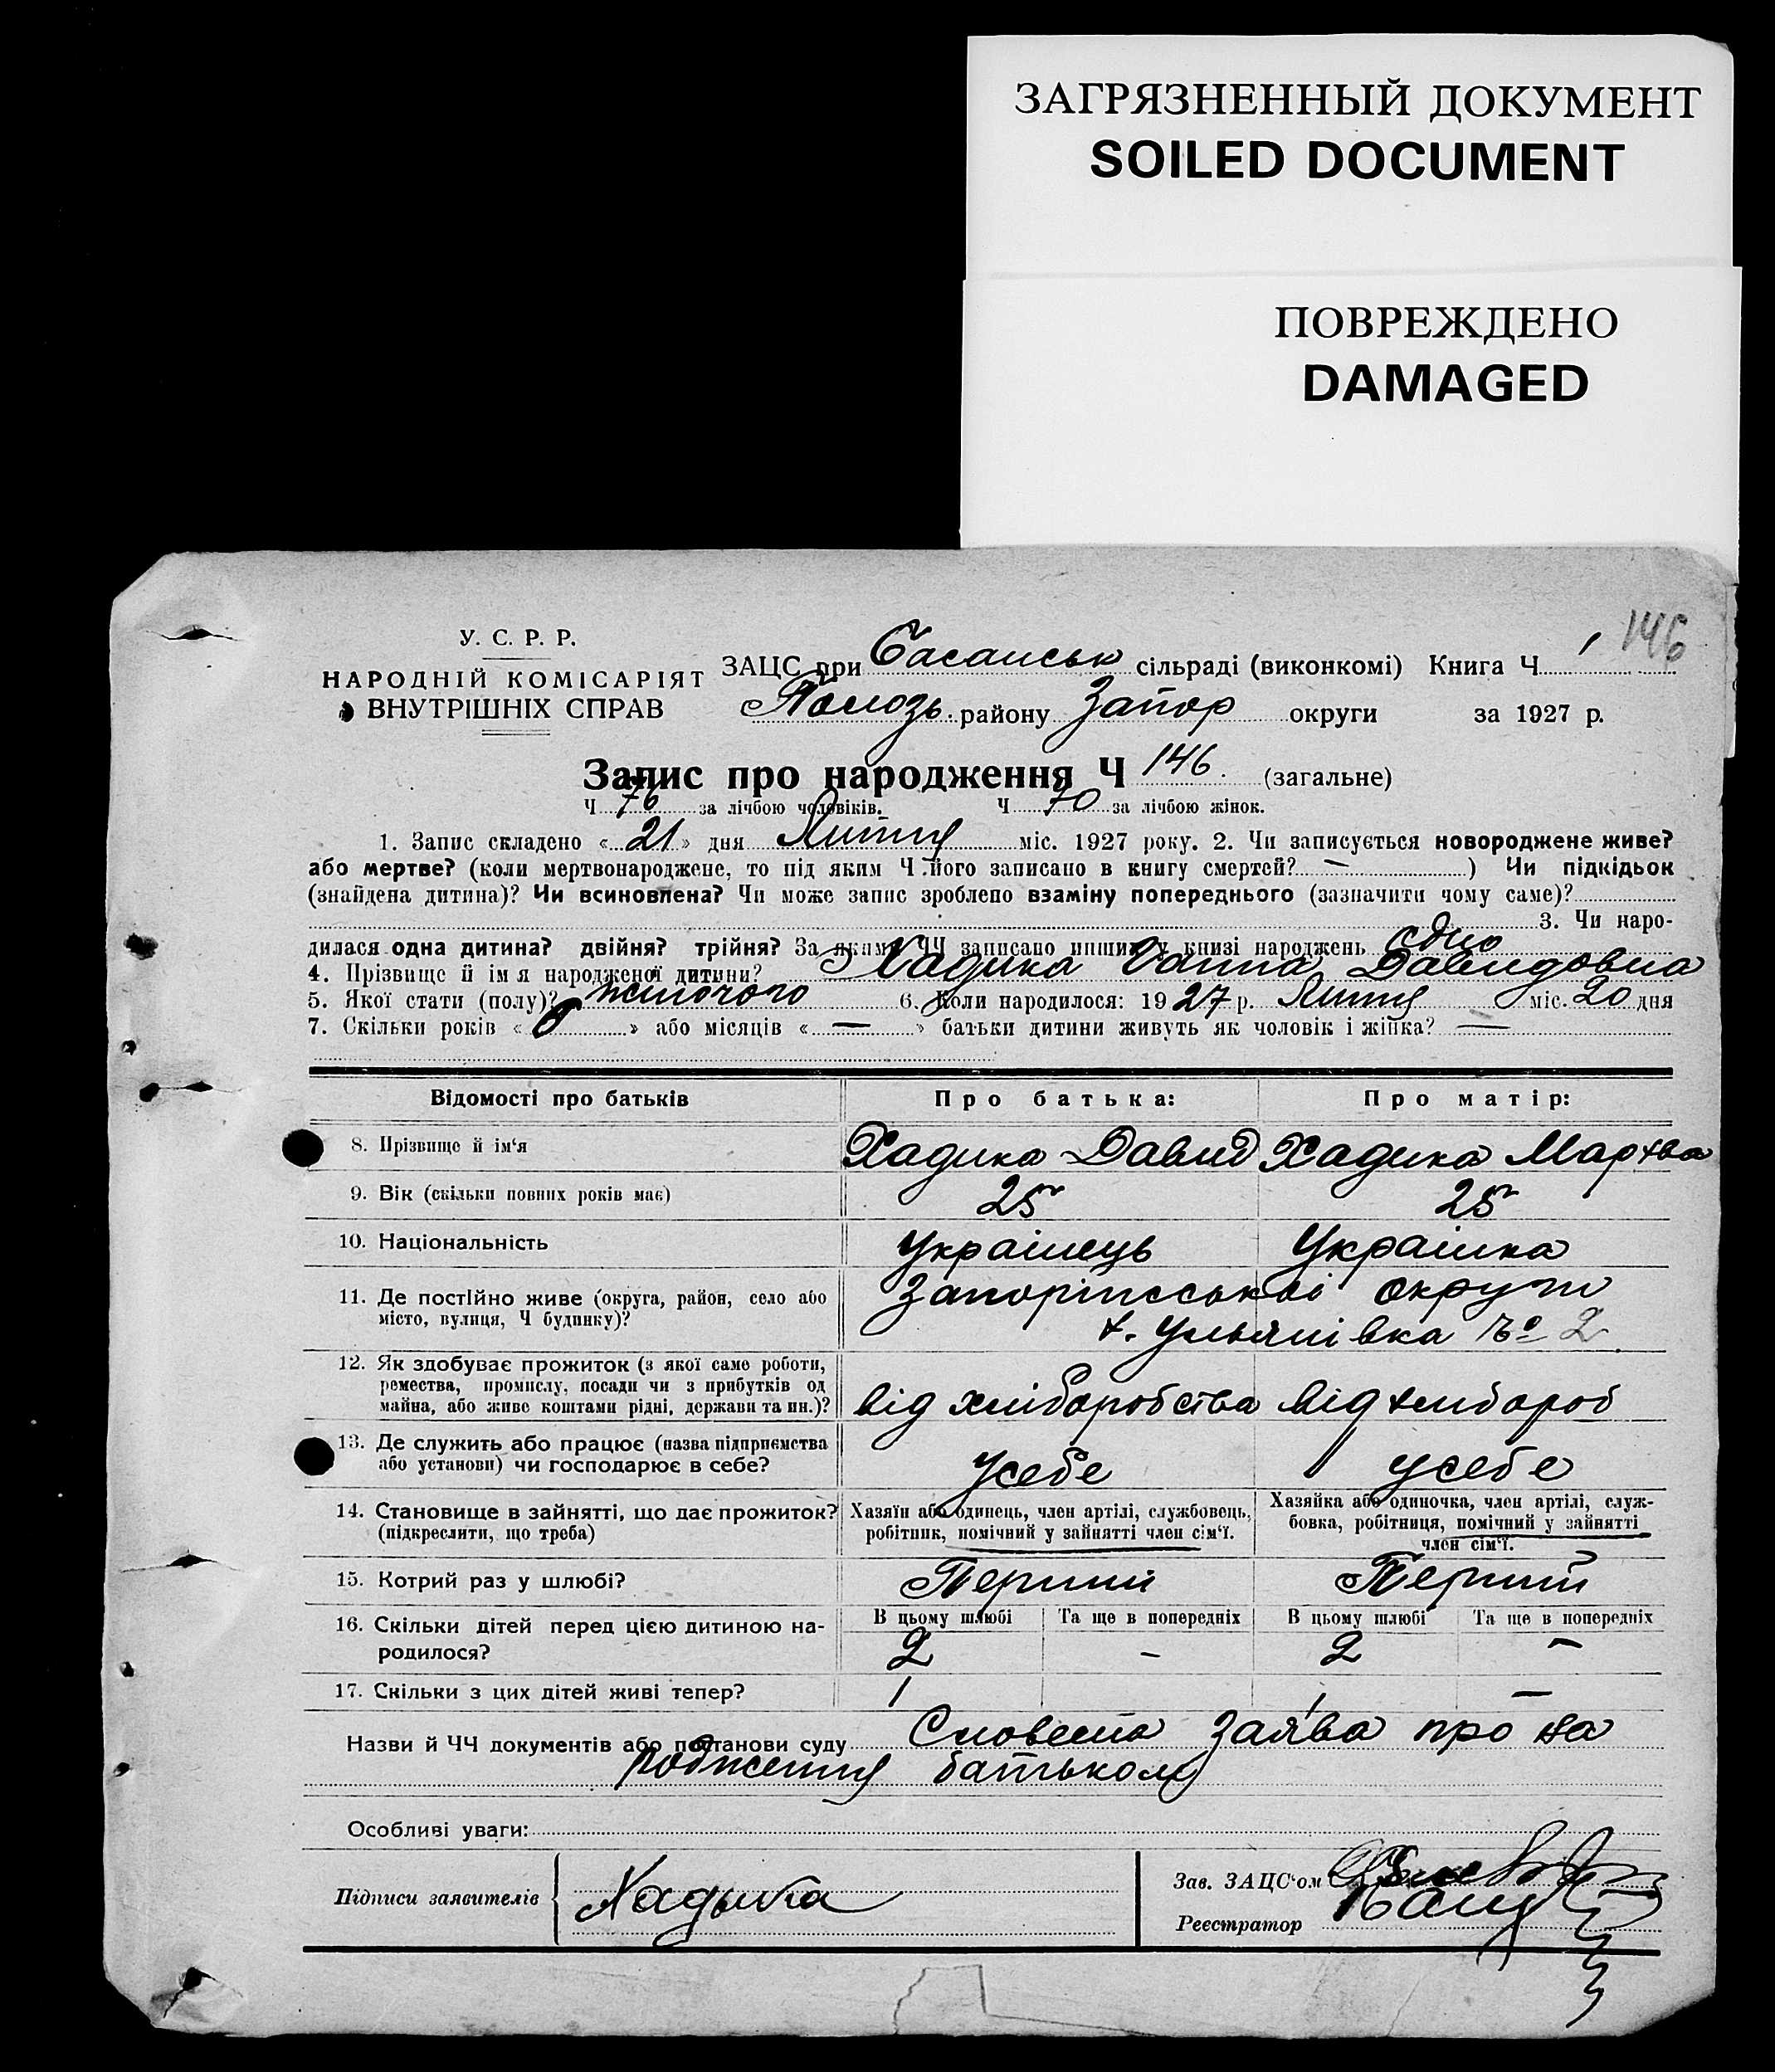 ЗАГРЯЗНЕННЫЙ ДОКУМЕНТ
SOILED DOCUMENT
ПОВРЕЖДЕНО
DAMAGED
146
У. С. Р. Р.
НАРОДНІЙ КОМІСАРІЯТ
ВНУТРІШНІХ СПРАВ
ЗАЦС при Басанськ сільраді (виконкомі) Книга Ч 1
Пологв. району Запор округи за 1927 р.
Запис про народження Ч 146. (загальне)
Ч 76 за лічбою чоловіків. Ч 70 за лічбою жінок.
1. Запис складено « 21 » дня Липня міс. 1927 року. 2. Чи записується новороджене живе?
або мертве? (коли мертвонароджене, то під яким Ч його записано в книгу смертей? — ) Чи підкідьок
(знайдена дитина)? Чи всиновлена? Чи може запис зроблено взаміну попереднього (зазначити чому саме)?
3. Чи наро-
дилася одна дитина? двійня? трійня? За якими ЧЧ записано инших у книзі народжень одно
4. Прізвище й ім я народженої дитини? Хадика Ганна Давидовна
5. Якої стати (полу)? жіночого 6. Коли народилося: 1927 р. Липня міс. 20 дня
7. Скільки років « 6 » або місяців « — » батьки дитини живуть як чоловік і жінка? —
Відомості про батьків Про батька: Про матір:
8. Прізвище й ім'я Хадика Давид Хадика Мартва
9. Вік (скільки повних років має) 25 25
10. Національність Українець Українка
11. Де постійно живе (округа, район, село або Запоріжської округи
місто, вулиця, Ч будинку)? х. Ульянівка № 2
12. Як здобуває прожиток (з якої саме роботи,
ремества, промислу, посади чи з прибутків од
майна, або живе коштами рідні, держави та ин.)? від хліборобства від хлибороб
13. Де служить або працює (назва підприємства
або установи) чи господарює в себе? усебе усебе
14. Становище в зайнятті, що дає прожиток? Хазяїн або одинець, член артілі, службовець, Хазяйка або одиночка, член артілі, служ-
(підкреслити, що треба) робітник, помічний у зайнятті член сім'ї. бовка, робітниця, помічний у зайнятті
член сім'ї.
15. Котрий раз у шлюбі? Перший Перший
16. Скільки дітей перед цією дитиною на- В цьому шлюбі Та ще в попередніх В цьому шлюбі Та ще в попередніх
родилося? 2 — 2 —
17. Скільки з цих дітей живі тепер? 1 1 —
Назви й ЧЧ документів або постанови суду Словесна заява про на
родження батьком
Особливі уваги:
Підписи заявителів Хадыка
Зав. ЗАЦС'ом
Реєстратор